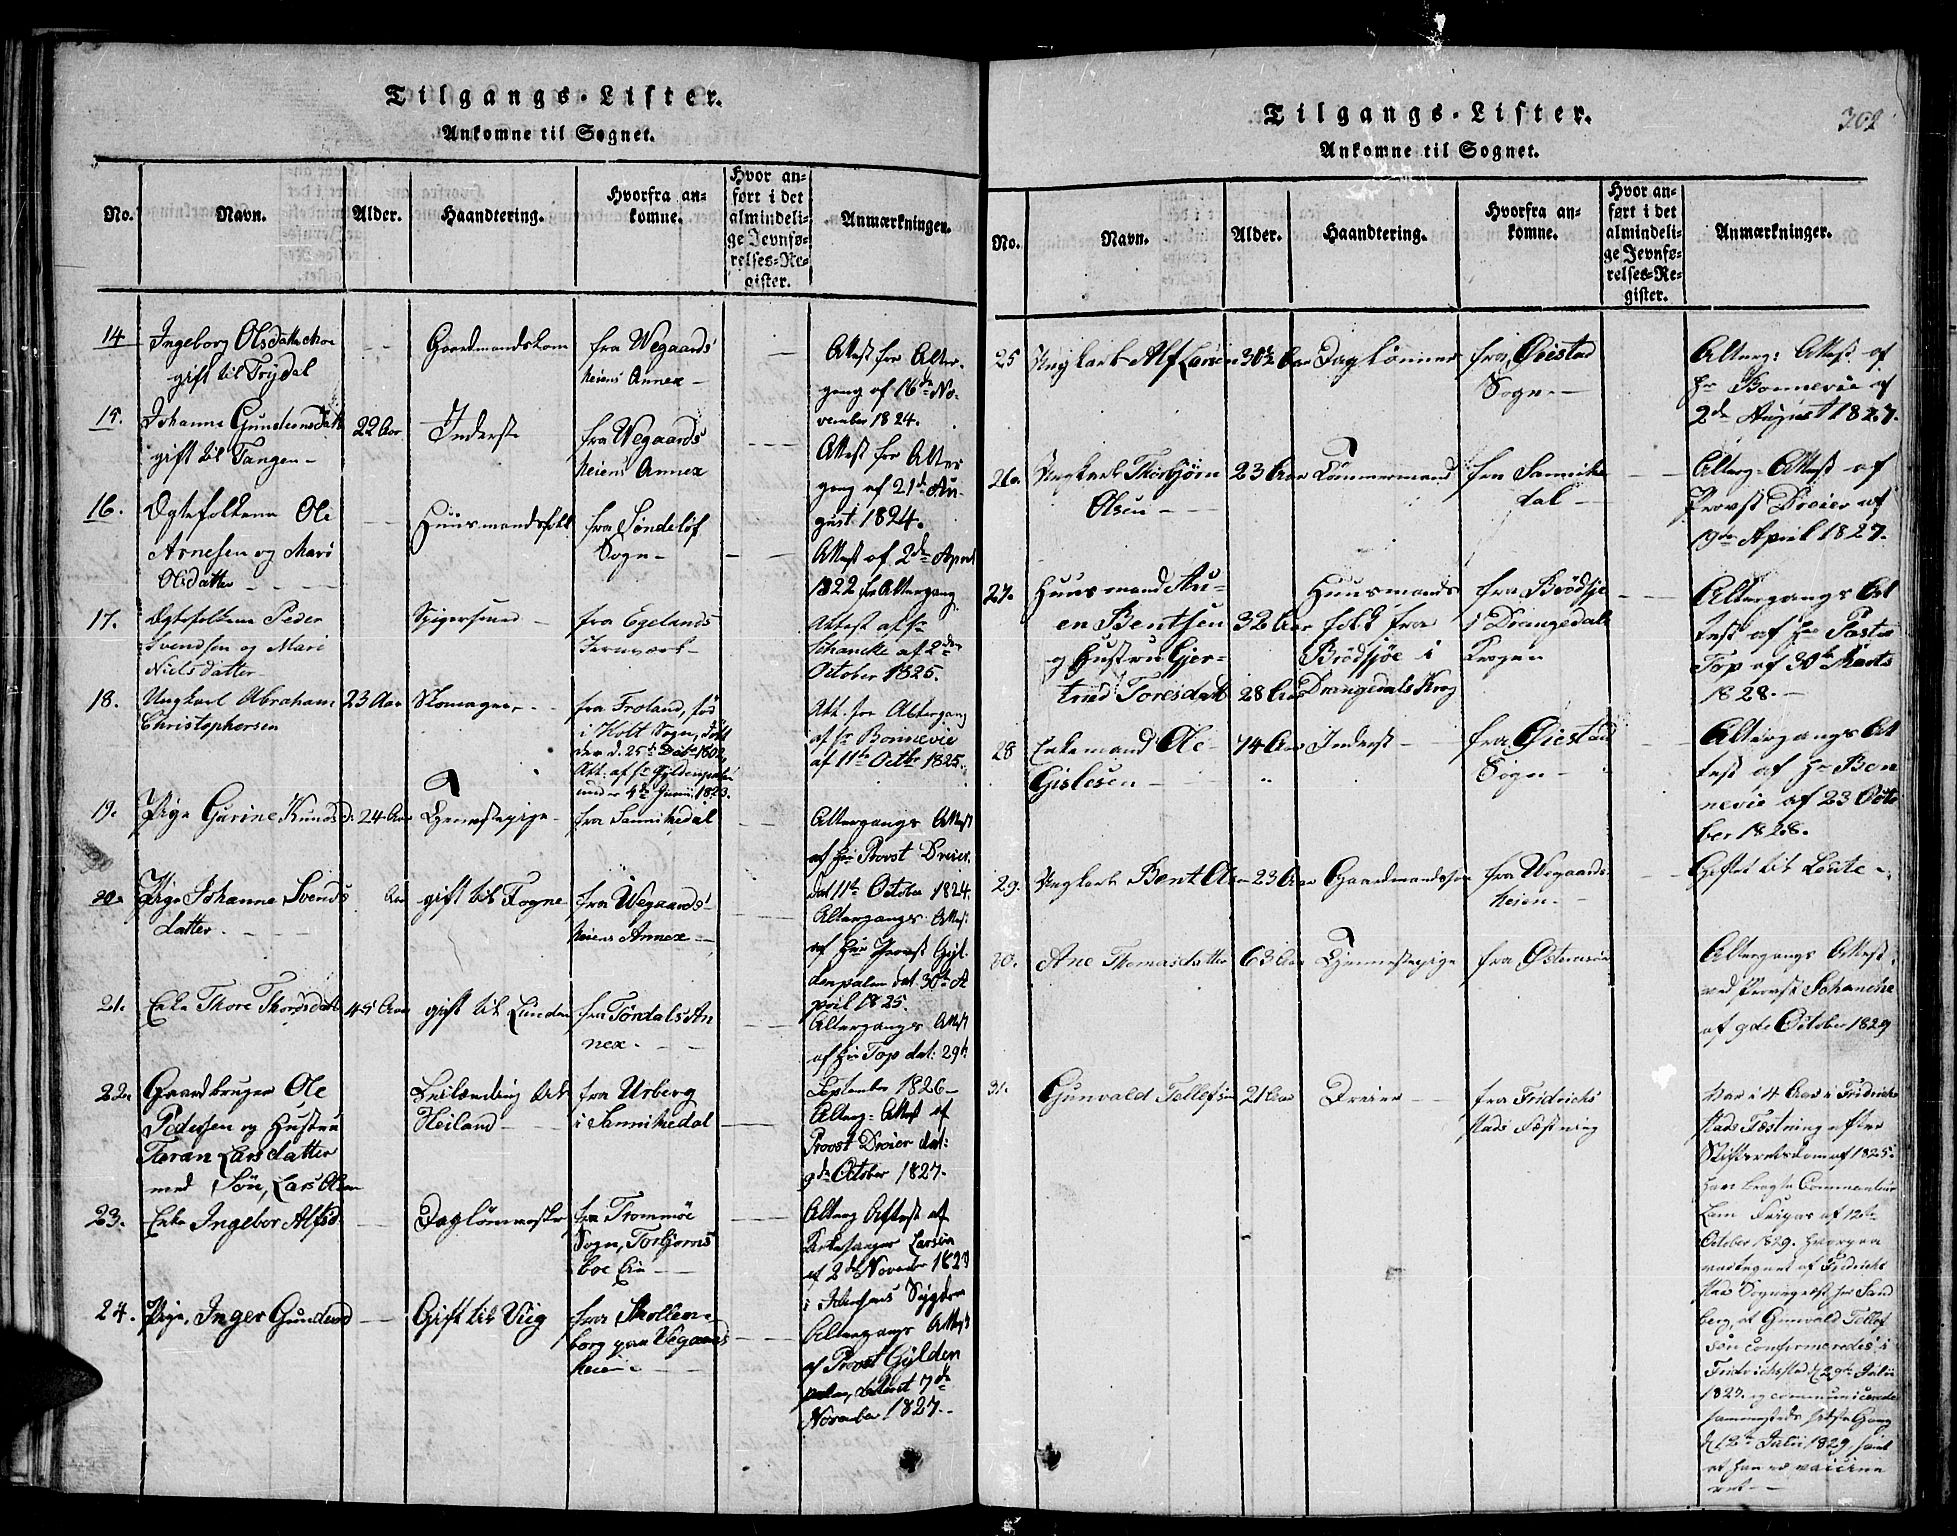 Tilgangs-Lister.
Ankomne til Sognet.
No.
Navn.
Alder.
Haandtering.
Hvorfra an-
komne.
Hvor an-
ført i det
almindeli-
ge Jevnfø-
relses-Re-
gister.
Anmærkninger.
14
Ingeborg Olsdatter
gift til Trydal
Gaardmandskone
fra Wegaards
heiens Annex
Attest for Alter-
gang af 16de No-
vember 1824.
15.
Johanne Gundersdatt
gift til Tangen
22 Aar
Inderste
fra Wegaards
heiens Annex
Attest for Alter
gang af 21de Au-
gust 1824.
16.
Ægtefolkene Ole
Arnesen og Mari
Olsdatter
Huusmandsfolk
fra Søndeløf
Sogn
Attest af 2den April
1822 for Altergang
17.
Ægtefolkene Peder
Svendsen og Mari
Nielsdatter
Spigersmed
fra Egelands
Jernværk
Attest af Hr
Schancke af 2den
October 1825.
18.
Ungkarl Abraham
Christophersen
23 Aar
Skomager
fra Froland, fød
i Holt Sogn, døbt
der d. 25de Debr 1802,
Att. af Hr Gyldenpalm
under 4de Junii 1823.
Att. for Altergang
af Hr Bonnevie
af 11te Octbr 1825.
19.
Pige Gurine Knudsd.
24 Aar
Tjenestepige
fra Sannikedal
Altergangs Attest
af Hr Provst Dreier
dat 11te October 1824.
20.
Pige Johanne Svends
datter
Aar
gift til Fogne
fra Wegaards-
heiens Annex
Altergangs Attest
af Hr Provst Gyl-
denpalm dat. 30te A
pril 1825.
21.
Enke Thore Thorsdatt
45 Aar
gift til Lunden
fra Tørdals An
nex.
Altergangs Attest
af Hr Top dat: 29de
September 1826
22.
Gaardbruger Ole
Pedersen og Hustru
Taran Larsdatter
med Søn, Lars Olsen
Leilænding
Heiland
fra Urberg
i Sannikedal
Alterg: Attest af
Provst Dreier dat:
9de October 1827.
23.
Enke Ingebor Alfsd.
fra Trommøe
Sogn, Torbjørns
boe Eie
Alterg Attest af
Kirkesanger Larsen
af 2de November 182
24.
Pige, Inger Gundersd
Gift til Viig
fra Skollen-
borg paa Vegaards
heien
Altergangs Attest
af Provst Gylden
palm, dateret 7de
November 1827.
Tilgangs-Lister.
Ankomne til Sognet.
302
No.
Navn.
Alder.
Haandtering.
Hvorfra an-
komne.
Hvor an-
ført i det
almindeli-
ge Jevnfø-
relses-Re-
gister.
Anmærkninger.
25
Ungkarl Alf Larsen
30½ Aar
Daglønner
fra Øiestad
Sogn
Alterg: Attest af
Hr Bonnevie af
2de August 1827.
26.
Ungkarl Thorbjørn
Olsen
23 Aar
Tømmermand
fra Sannike
dal
Alterg-Attest af
Provst Dreier af
19de April 1827.
27.
Huusmand Au-
en Bentsen
og Hustru Gjer-
trud Toresdatt
32 Aar
28 Aar
Huusmands
folk fra
Brødsjøe i
Drangedals Krog
fra Brødsje
i Drangedals
Krogen
Altergangs At
test af Hr Pastor
Top af 30te Marts
1828.
28
Enkemand Ole
Gislesen
74 Aar
Inderst
fra Øiestad
Sogn
Altergangs At
test af Hr Bon
nevie af 23 Octo
ber 1828.
29.
Ungkarl Bent Olsen
23 Aar
Gaardmandssøn
fra Wegaards
heien.
Giftet til Leute
30.
Ane Thomasdatter
63 Aar
Tjenestepige
fra Østerrisøer
Altergangs Attest
ved Provst Schancke
af 9de October 1829
31.
Gunvald Tellefsen
21 Aar
Dreier
fra Fridrichs
stads Fæstning
Var i 4 Aar i Fridrichs
stads Fæstning efter
Stiftsretsdom af 1825.
Han bragte Commandeur
October 1829. hvorpaa
var tegnet af Fridrichs
stad Sognepræst Hr Sand
berg, at Gunvald Tellef
søn confirmeredes i
Fridrichsstad d 29de Julii
1827. og communicerede
sammesteds sidste Gang
d 12te Julii 1829, samt
at han er vaccine
ret